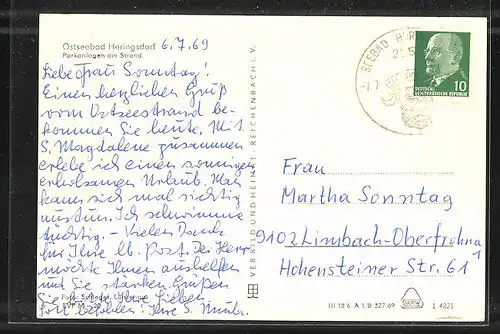 Ostseebad Heringsdorf 6.7.69
Parkanlagen am Strand
Liebe Frau Sonntag!
Einen herzlichen Gruß
vom Ostseestrand be-
kommen Sie heute. Mit
S. Magdalene zusammen
erlebe ich einen sonnigen
erholsamen Urlaub. Man
kann sich mal richtig
austun. Ich schwimme
tüchtig. – Vielen Dank
für Ihre lb. Post. Der Herr
möchte Ihnen aushelfen
und Sie stärken. Grüßen
Sie Ihre Lieben.
Gott befohlen! Ihre S.
Foto:
VEB BILD UND HEIMAT REICHENBACH I. V.
SEEBAD
DEUTSCHE
DEMOKRATISCHE REPUBLIK
10
Frau
Martha Sonntag
9102 Limbach-Oberfrohna 1
Hohensteiner Str. 61
III 18 6 A 1/B 327 69
1 4821